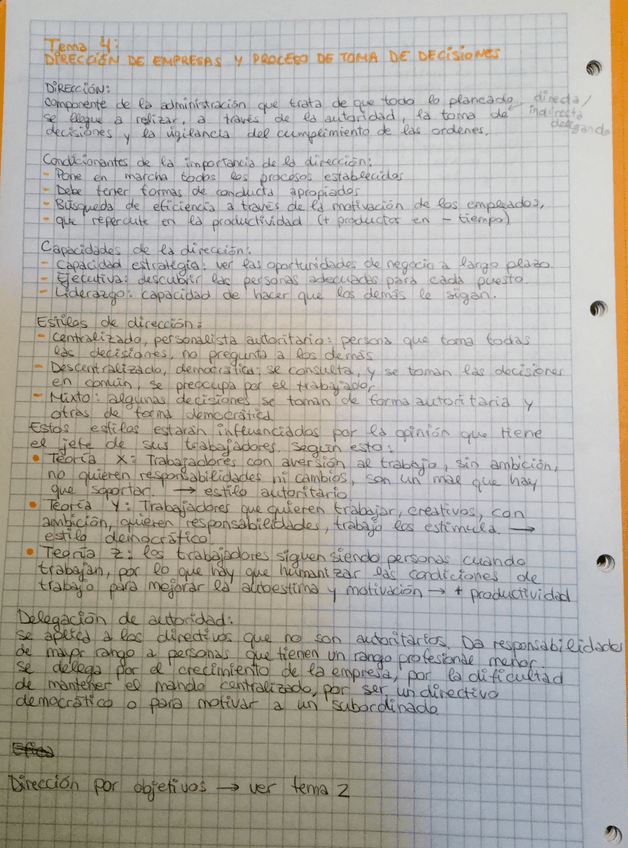 Tema 4:
DIRECCIÓN DE EMPRESAS Y PROCESO DE TOMA DE DECISIONES
DIRECCIÓN:
componente de la administración que trata de que todo lo planeado directa/
se llegue a relizar, a través de la autoridad, la toma de indirecta
decisiones y la vigilancia del cumplimiento de las ordenes. delegando
Condicionantes de la importancia de la dirección:
- Pone en marcha todos los procesos establecidos
- Debe tener formas de conducta apropiados
- Búsqueda de eficiencia a través de la motivación de los empleados,
- que repercute en la productividad (+ productos en - tiempo)
Capacidades de la dirección:
- Capacidad estratégia: ver las oportunidades de negocio a largo plazo.
- Ejecutiva: descubrir las personas adecuadas para cada puesto.
- Liderazgo: capacidad de hacer que los demás le sigan.
Estilos de dirección:
- Centralizado, personalista autoritario: persona que toma todas
las decisiones, no pregunta a los demás
- Descentralizado, democrática: se consulta, y se toman las decisiones
en común, se preocupa por el trabajador
- Mixto: algunas decisiones se toman de forma autoritaria y
otras de forma democrática.
Estos estilos estarán influenciados por la opinión que tiene
el jefe de sus trabajadores. Según esto:
• Teoría X: Trabajadores con aversión al trabajo, sin ambición,
no quieren responsabilidades ni cambios, son un mal que hay
que soportar. → estilo autoritario
• Teoría Y: Trabajadores que quieren trabajar, creativos, con
ambición, quieren responsabilidades, trabajo los estimula →
estilo democrático.
• Teoría Z: los trabajadores siguen siendo personas cuando
trabajan, por lo que hay que humanizar las condiciones de
trabajo para mejorar la autoestima y motivación → + productividad
Delegación de autoridad:
Se aplica a los directivos que no son autoritarios. Da responsabilidades
de mayor rango a personas que tienen un rango profesional menor.
Se delega por el crecimiento de la empresa, por la dificultad
de mantener el mando centralizado, por ser un directivo
democrático o para motivar a un subordinado.
Dirección por objetivos → ver tema 2